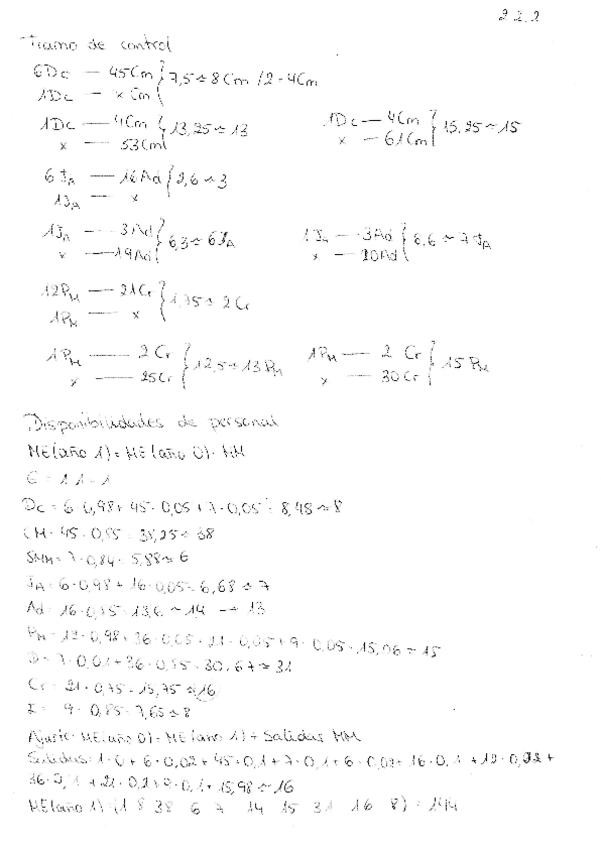 2.2.2
Tramo de control
6Dc — 45Cm } 7,5 ≈ 8 Cm /2 - 4Cm
1Dc — x Cm
1Dc — 4Cm } 13,25 ≈ 13 1Dc — 4Cm } 15,25 ≈ 15
x — 53Cm x — 61Cm
6 JA — 16Ad } 2,6 ≈ 3
1JA — x
1JA — 3Ad } 6,3 ≈ 6JA 1JA — 3Ad } 6,6 ≈ 7 JA
x — 19Ad x — 20Ad
12PM — 21Cr } 1,75 ≈ 2Cr
1PM — x
1PM — 2 Cr } 12,5 ≈ 13 PM 1PM — 2 Cr } 15 PM
x — 25Cr x — 30Cr
Disponibilidades de personal
ME(año 1) = ME(año 0) · MM
G = 1·1 = 1
Dc = 6·0,98 + 45·0,05 + 7·0,05 = 8,48 ≈ 8
CM = 45·0,85 = 38,25 ≈ 38
SMM = 7·0,84 = 5,88 ≈ 6
JA = 6·0,98 + 16·0,05 = 6,68 ≈ 7
Ad = 16·0,85 = 13,6 ≈ 14 → 13
PM = 12·0,98 + 36·0,05 + 21·0,05 + 9·0,05 = 15,06 ≈ 15
7·0,01 + 36·0,85 = 30,67 ≈ 31
Cr = 21·0,75 = 15,75 ≈ 16
9·0,85 = 7,65 ≈ 8
Ajuste: ME(año 0) = ME(año 1) + Salidas MM
Salidas: 1·0 + 6·0,02 + 45·0,1 + 7·0,1 + 6·0,02 + 16·0,1 + 12·0,02 +
36·0,1 + 21·0,2 + 9·0,1 = 15,98 ≈ 16
ME(año 1) = (1 8 38 6 7 14 15 31 16 8) = 144